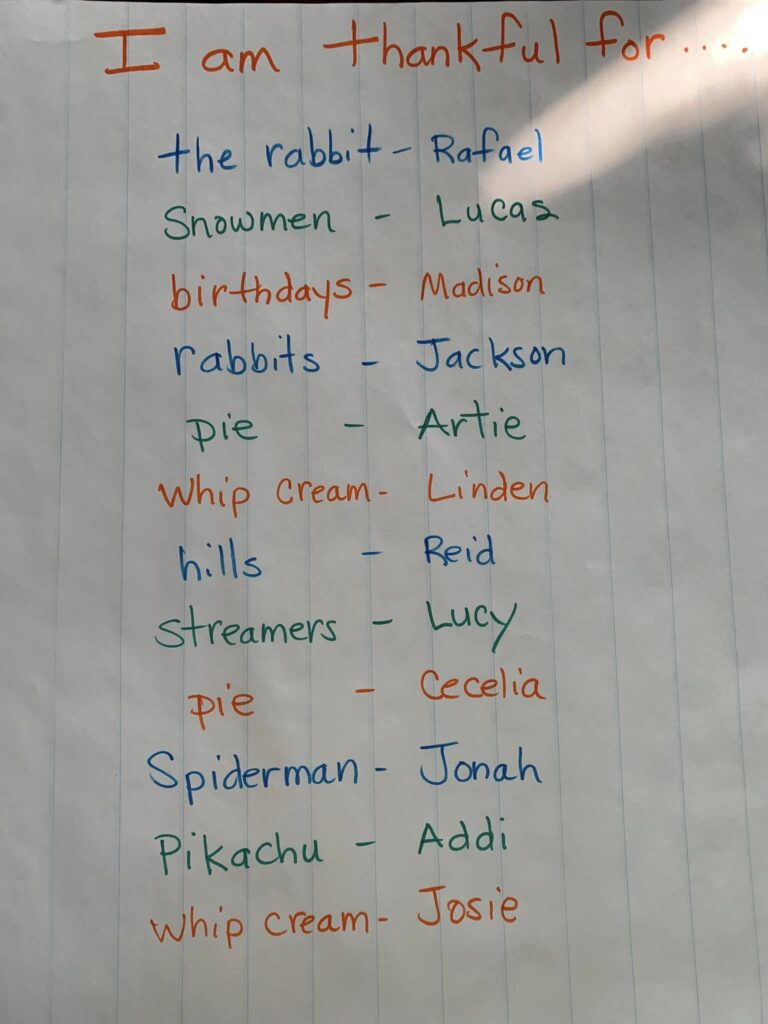 I am thankful for....
the rabbit - Rafael
Snowmen - Lucas
birthdays - Madison
rabbits - Jackson
pie - Artie
Whip cream - Linden
hills - Reid
streamers - Lucy
pie - Cecelia
Spiderman - Jonah
Pikachu - Addi
Whip cream - Josie